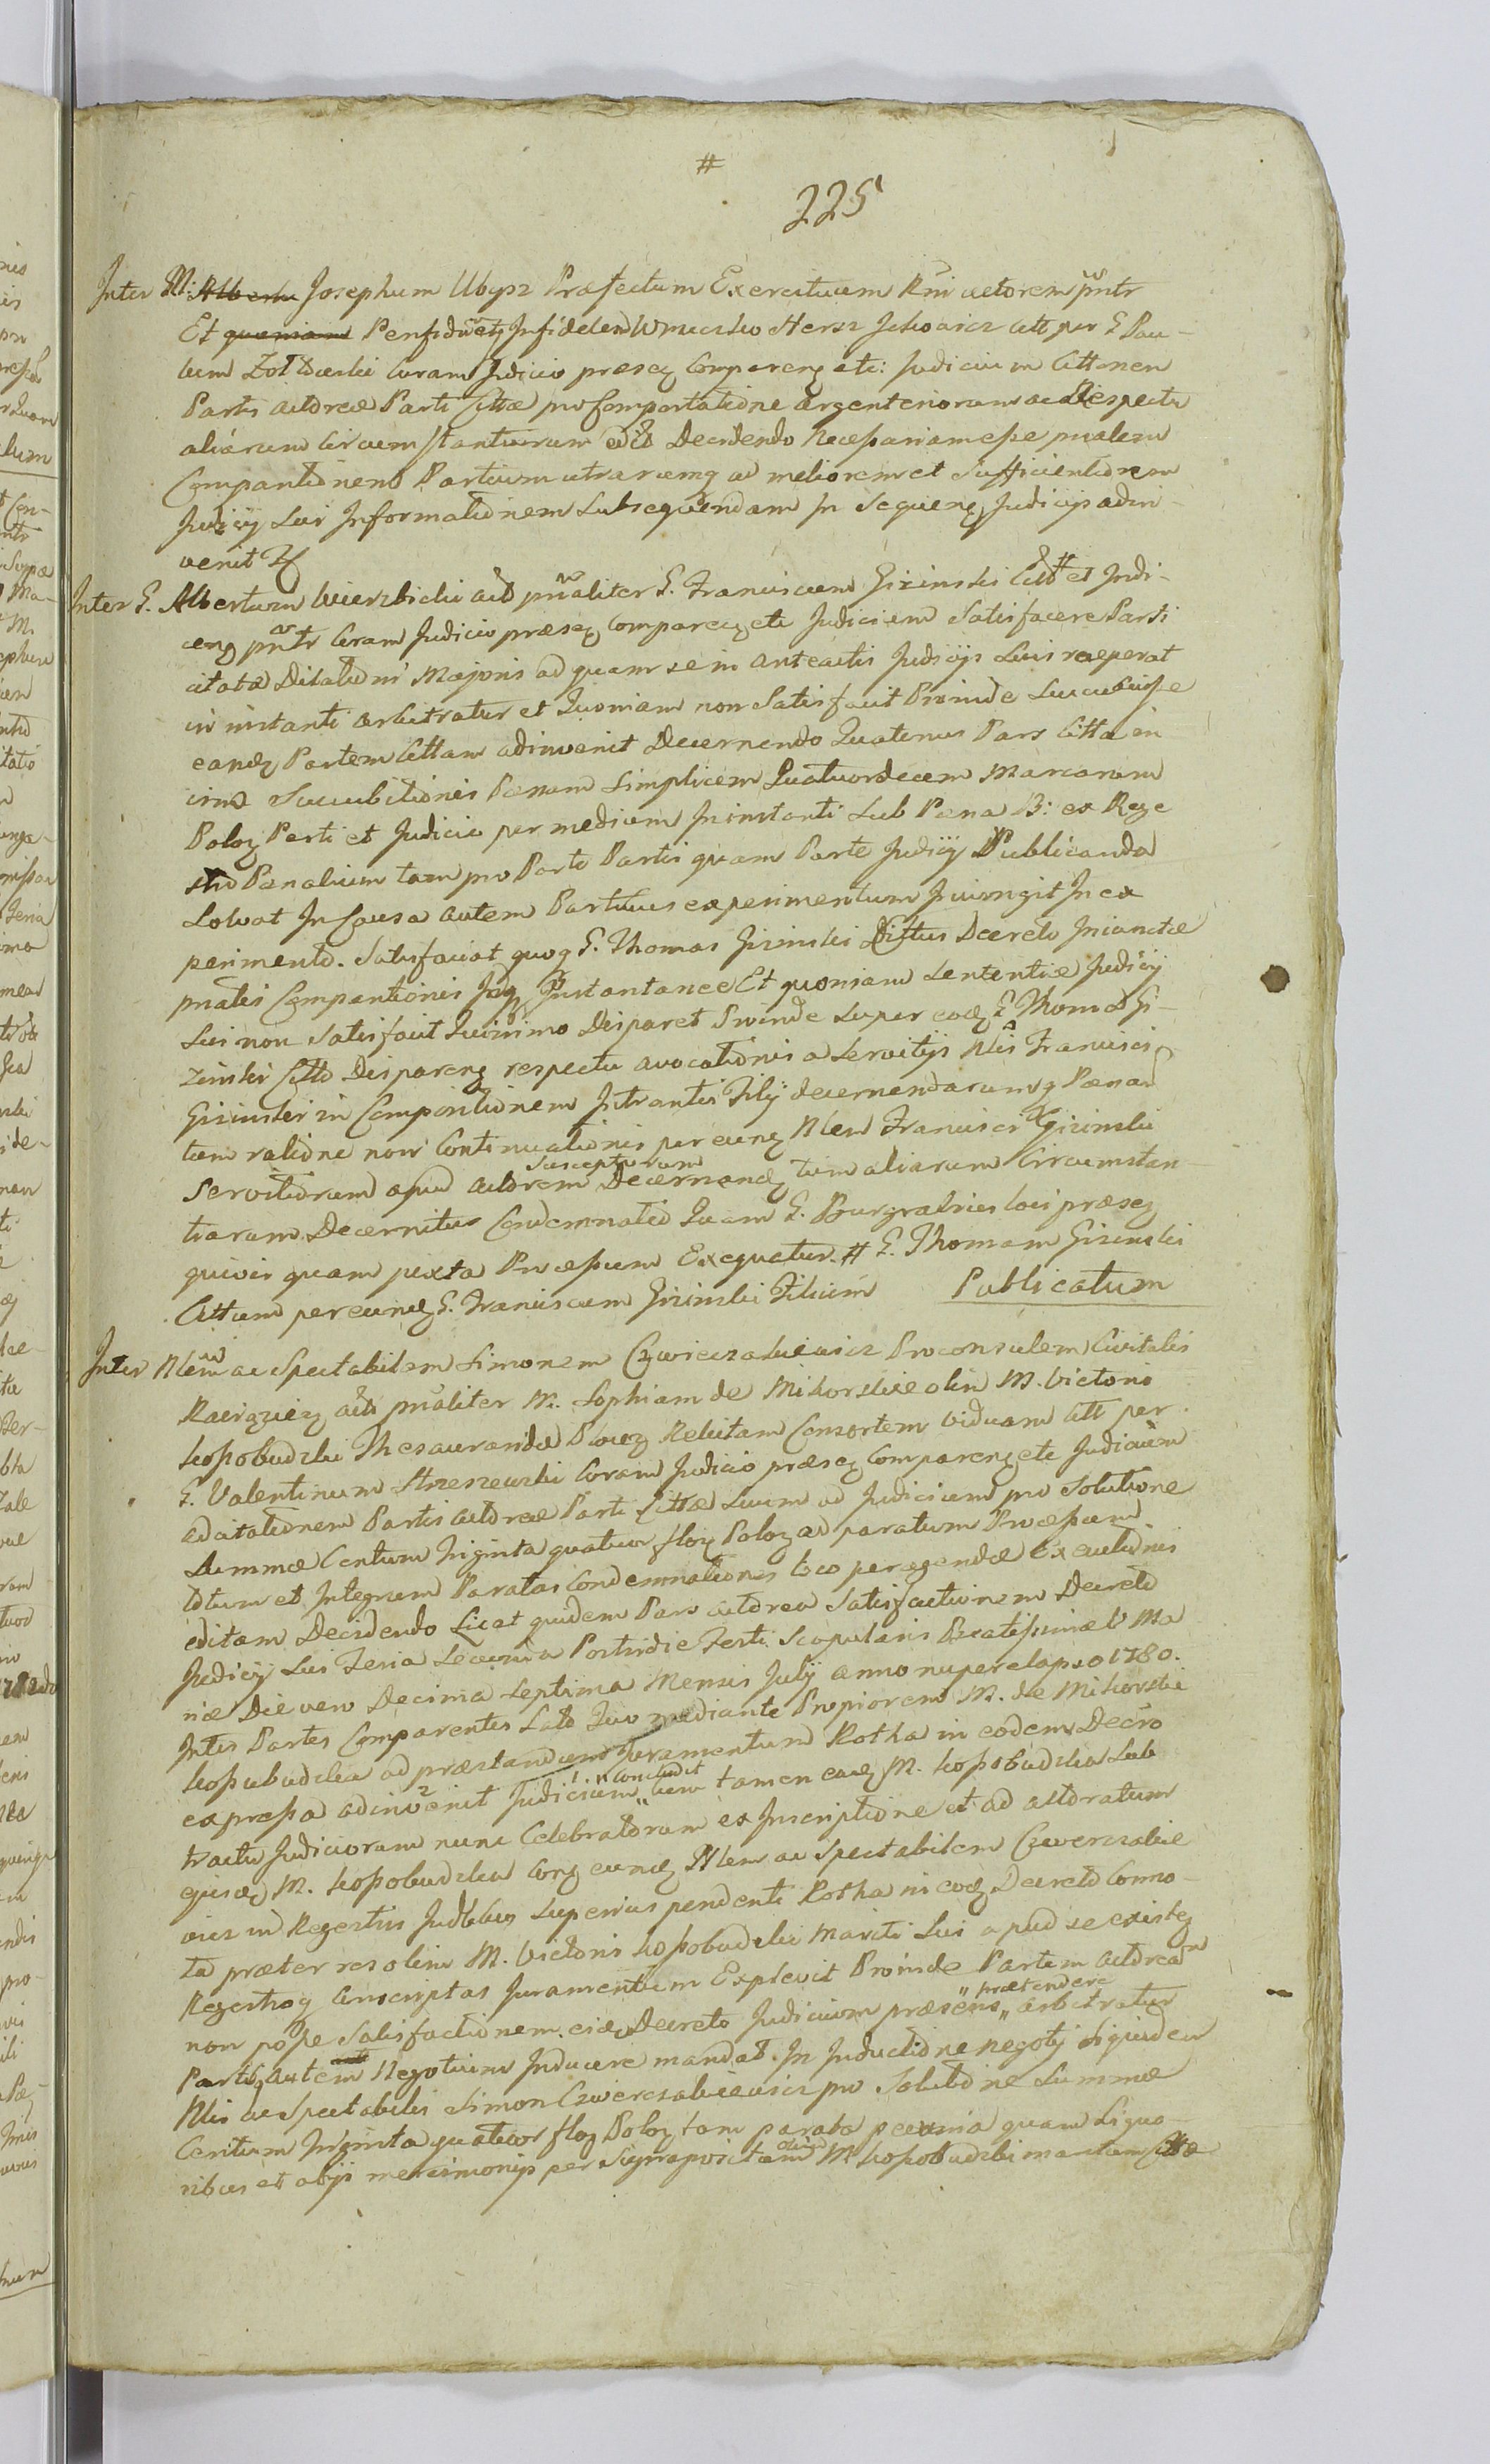 #
225
Inter M: Alberta Josephum Ubysz Præfectum Exercituum Rni actorem pntr
Et quoniam Perfidum et Infidelem Wmuszko Hersz Jehowicz Citt per G Pau-
lum Zołdowski Coram Judicio præseq Compareng etc: Judicium Cittonem
Partis actoreæ Parti Cittæ pro Comportatione argenteriorum ac Respectu
aliarum Circumstantiarum edit Decidendo Necessariam esse pnalem
Comparitionem Partium utrarumq ad meliorem et Sufficientiorem
Judicij Sui Informationem Subsequendam In Sequeng Judicijs adin-
venit
Inter G. Albertum Wierzbicki act pnaliter G. Franciscum Gizinski Citt # et Indi-
ceng pntr Coram Judicio præseq Compareng etc Judicium Satisfacere Parti
citatæ Dilationi Majoris ad quam se in anteactis Judicijs Suis receperat
in instanti arbitratur et Quoniam non Satisfacit Proinde Succubuisse
eandq Partem Cittam adinvenit Decernendo Quatenus Pars Citta in
vim Succubitionis Pænam Simplicem Quatuordecem Marcarum
Poloq Parti et Judicio per medium In instanti Sub Pæna B: ex Rege
stro Pænalium tam pro Parte Partis quam Parte Judicij Publicanda
Solvat In Causa autem Partibus experimentum Iniungit In ex
perimento. Satisfaciat quoq G. Thomas Gizinski Cittus Decreto Iniunctæ
pnalis Comparitionis Instantanee Et quoniam Sententiæ Judicij
Sui non Satisfacit Quinimo Disparet Proinde Super eodq G Thoma Gi-
zinski Citto Dispareng respectu avocationis a Servitijs Nlis Francisci
Gizinski in Compositionem Intrantis Filij decernendarumq Pænar
tum ratione non Continuationis per eunq Nlem Francisci Gizinski
Servitiorum apud actorem Susceptorum Decernendq tum aliarum Circumstan-
tiarum Decernitur Condemnatio Quam G. Burgrabius loci præseq
quivis quam juxta Processum Exequatur. # G. Thomam Gizinski
Cittum per eundq G. Franciscum Gizinski Filium Publicatum
Inter Nlem ac Spectabilem Simonem Czwierzakiewicz Proconsulem Civitatis
Raciązieq act pnaliter M. Sophiam de Mikorskie olim M. Victoris
Kossobudzki Thesauraridæ Płoceq Relictam Consortem Viduam Citt per
G. Valentinum Strzeszewski Coram Judicio præseq Compareng etc Judicium
ad citationem Partis actoreæ Parti Cittæ Suum ad Judicium pro Solutione
Summæ Centum Triginta quatuor floq Poloq ad paratum Processum
totum et Integrum Paratas Condemnationes loco peragendæ Executionis
editam Decidendo Licet quidem Pars actorea Satisfactionem Decreto
Judicij Sui Feria Secunda Postridie Festi Scapularis Beatissimæ V Ma
riæ Die vero Decima Septima Mensis Julij anno nuper elapso 1780.
Inter Partes Comparentes Lato Quo mediante Propiorem M. de Mikorskie
Kossobudzka ad præstandum Juramentum Rotha in eodem Decro
expressa adinvenit Judicium „ cum tamen eadq M. Kossobudzka Sub
„ concludit
tractu Judiciorum nunc Celebratorum ex Inscriptione et ad actoratum
ejusdq M. Kossobudzka Corq eundq Nlem ac Spectabilem Czwierzakie
wicz in Regestris Judlibus Superius pendenti Rotha in eodq Decreto Conno-
ta præter res olim M. Victoris Kossobudzki Mariti Sui apud se existeq
Regestroq Conscriptas Juramentum Explevit Proinde Partem actoream
non posse Satisfactionem eidq Decreto Judicium præsens „ prætendere „ arbitratur
Partibq autem Negotium Inducere mandat. In Inductione negotij Siquidem
Nlis ac Spectabilis Simon Czwierzakiewicz pro Solutione Summæ
Centum Triginta quatuor floq Poloq tam parata pecunia quam Liquo-
ribus et alijs mercimonijs per Suprapositam olim M Kossobudzki maritum Cittæ